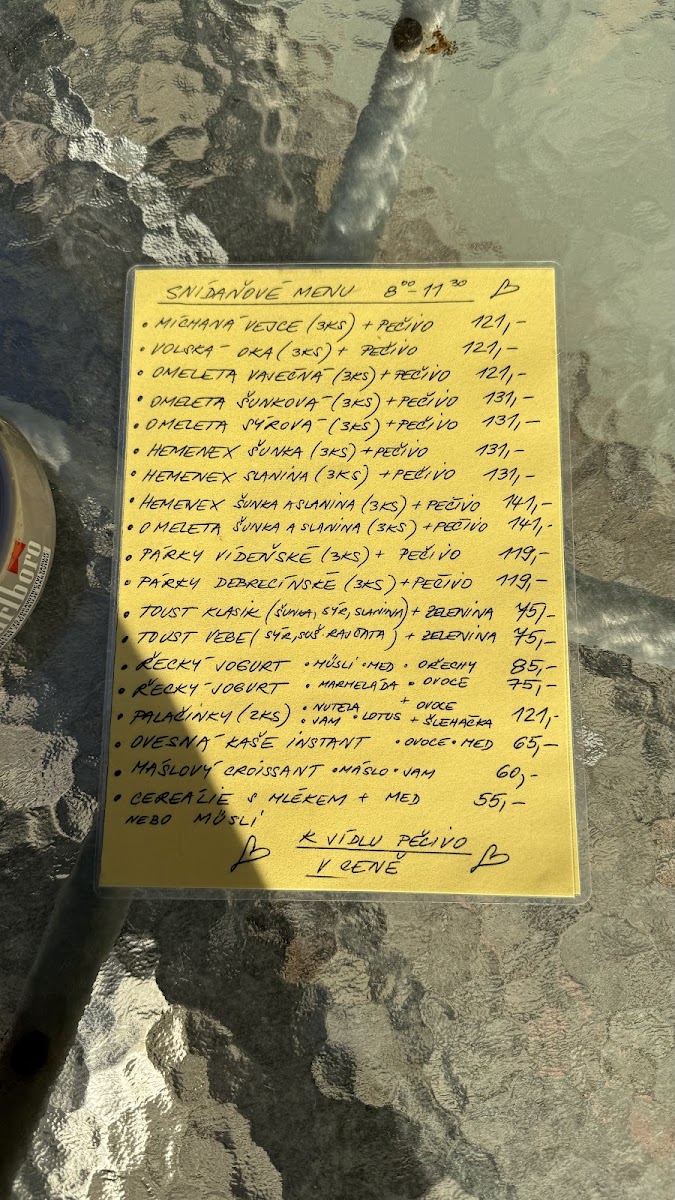 SNÍDAŇOVÉ MENU 8⁰⁰-11³⁰
• MÍCHANÁ VEJCE (3KS) + PEČIVO 121,-
• VOLSKÁ OKA (3KS) + PEČIVO 121,-
• OMELETA VAJEČNÁ (3KS) + PEČIVO 121,-
• OMELETA ŠUNKOVÁ (3KS) + PEČIVO 131,-
• OMELETA SÝROVÁ (3KS) + PEČIVO 131,-
• HEMENEX ŠUNKA (3KS) + PEČIVO 131,-
• HEMENEX SLANINA (3KS) + PEČIVO 131,-
• HEMENEX ŠUNKA A SLANINA (3KS) + PEČIVO 141,-
• OMELETA ŠUNKA A SLANINA (3KS) + PEČIVO 141,-
• PÁRKY VÍDEŇSKÉ (3KS) + PEČIVO 119,-
• PÁRKY DEBRECÍNSKÉ (3KS) + PEČIVO 119,-
• TOUST KLASIK (ŠUNKA, SÝR, SLANINA) + ZELENINA 75,-
• TOUST VEGE (SÝR, SUŠ. RAJČATA) + ZELENINA 75,-
• ŘECKÝ JOGURT • MÜSLI • MED • OŘECHY 85,-
• ŘECKÝ JOGURT • MARMELÁDA • OVOCE 75,-
• PALAČINKY (2KS) • NUTELA + OVOCE
• JAM • LOTUS + ŠLEHAČKA 121,-
• OVESNÁ KAŠE INSTANT • OVOCE • MED 65,-
• MÁSLOVÝ CROISSANT • MÁSLO • JAM 60,-
• CEREÁLIE S MLÉKEM + MED 55,-
NEBO MÜSLÍ
K JÍDLU PEČIVO
V CENĚ
arlboro